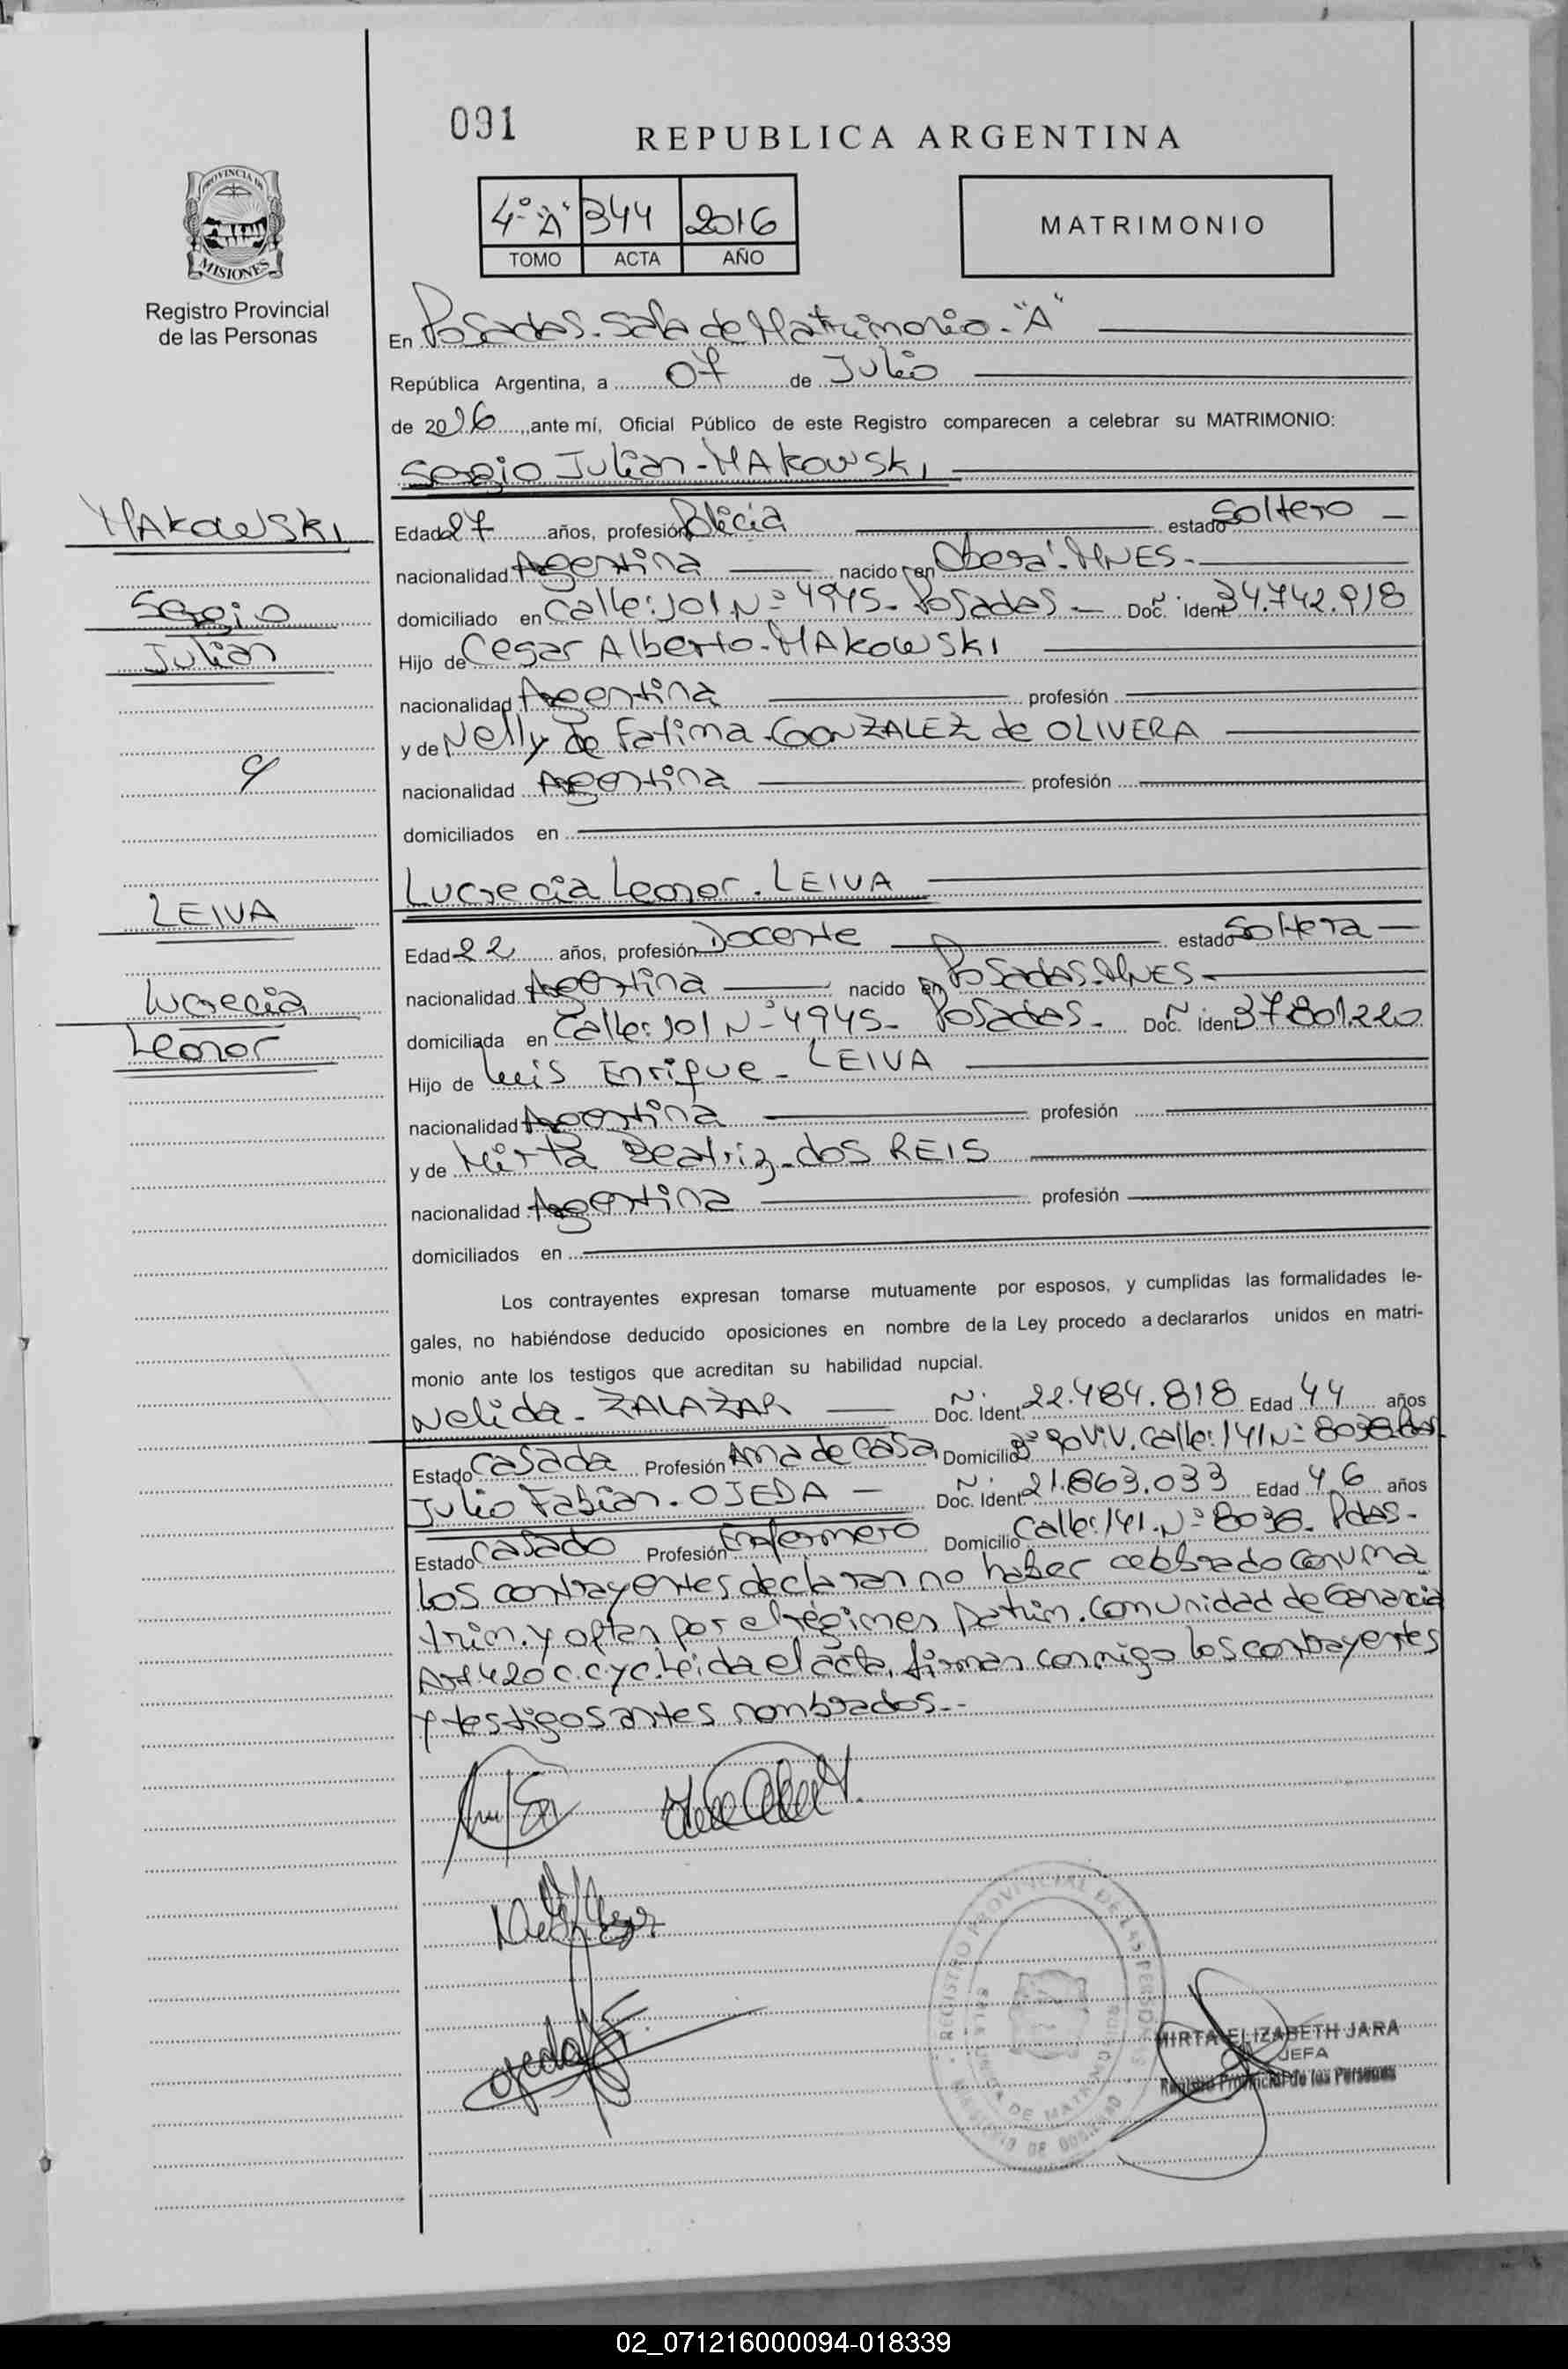 091
REPUBLICA ARGENTINA
4º "A" 344 2016
TOMO ACTA AÑO
MATRIMONIO
PROVINCIA DE
MISIONES
Registro Provincial
de las Personas
En Posadas. Sala de Matrimonio. "A"
República Argentina, a 07 de Julio
de 2016, ante mí, Oficial Público de este Registro comparecen a celebrar su MATRIMONIO:
Sergio Julian - MAKOWSKI
MAKOWSKI
Sergio
Julian
y
LEIVA
Lucrecia
Leonor
Edad 27 años, profesión Policia estado Soltero -
nacionalidad Argentina nacido en Oberá. MNES.-
domiciliado en Calle: 101 Nº 4945. Posadas - Doc. Ident 34.742.918
Hijo de Cesar Alberto - MAKOWSKI
nacionalidad Argentina profesión
y de Nelly de Fatima GONZALEZ de OLIVERA
nacionalidad Argentina profesión
domiciliados en
Lucrecia Leonor. LEIVA
Edad 22 años, profesión Docente estado Soltera -
nacionalidad Argentina nacido en Posadas. MNES -
domiciliada en Calle: 101 Nº 4945- Posadas- Doc. Iden 37801.220
Hijo de Luis Enrique - LEIVA
nacionalidad Argentina profesión
y de Mirta Beatriz - dos REIS
nacionalidad Argentina profesión
domiciliados en
Los contrayentes expresan tomarse mutuamente por esposos, y cumplidas las formalidades le-
gales, no habiéndose deducido oposiciones en nombre de la Ley procedo a declararlos unidos en matri-
monio ante los testigos que acreditan su habilidad nupcial.
Nelida - ZALAZAR - Doc. Ident. 22.484.818 Edad 44 años
Estado Casada Profesión Ama de Casa Domicilio 90 Viv. Calle: 141 Nº 8038
Julio Fabian - OJEDA - Doc. Ident 21.863.033 Edad 46 años
Estado Casado Profesión Enfermero Domicilio Calle: 141. Nº 8038. Pdas-
Los contrayentes declaran no haber celebrado Conv. Ma
trim. y optan por el régimen Patrim. Comunidad de Ganancia
Art. 420 C.C y C. Leida el acta, firman conmigo los contrayentes
y testigos antes nombrados.-
Ojeda JF.
REGISTRO PROVINCIAL DE LAS PERSONAS
DE MATRIMONIO
MIRTA ELIZABETH JARA
JEFA
Registro Provincial de las Personas
02_071216000094-018339